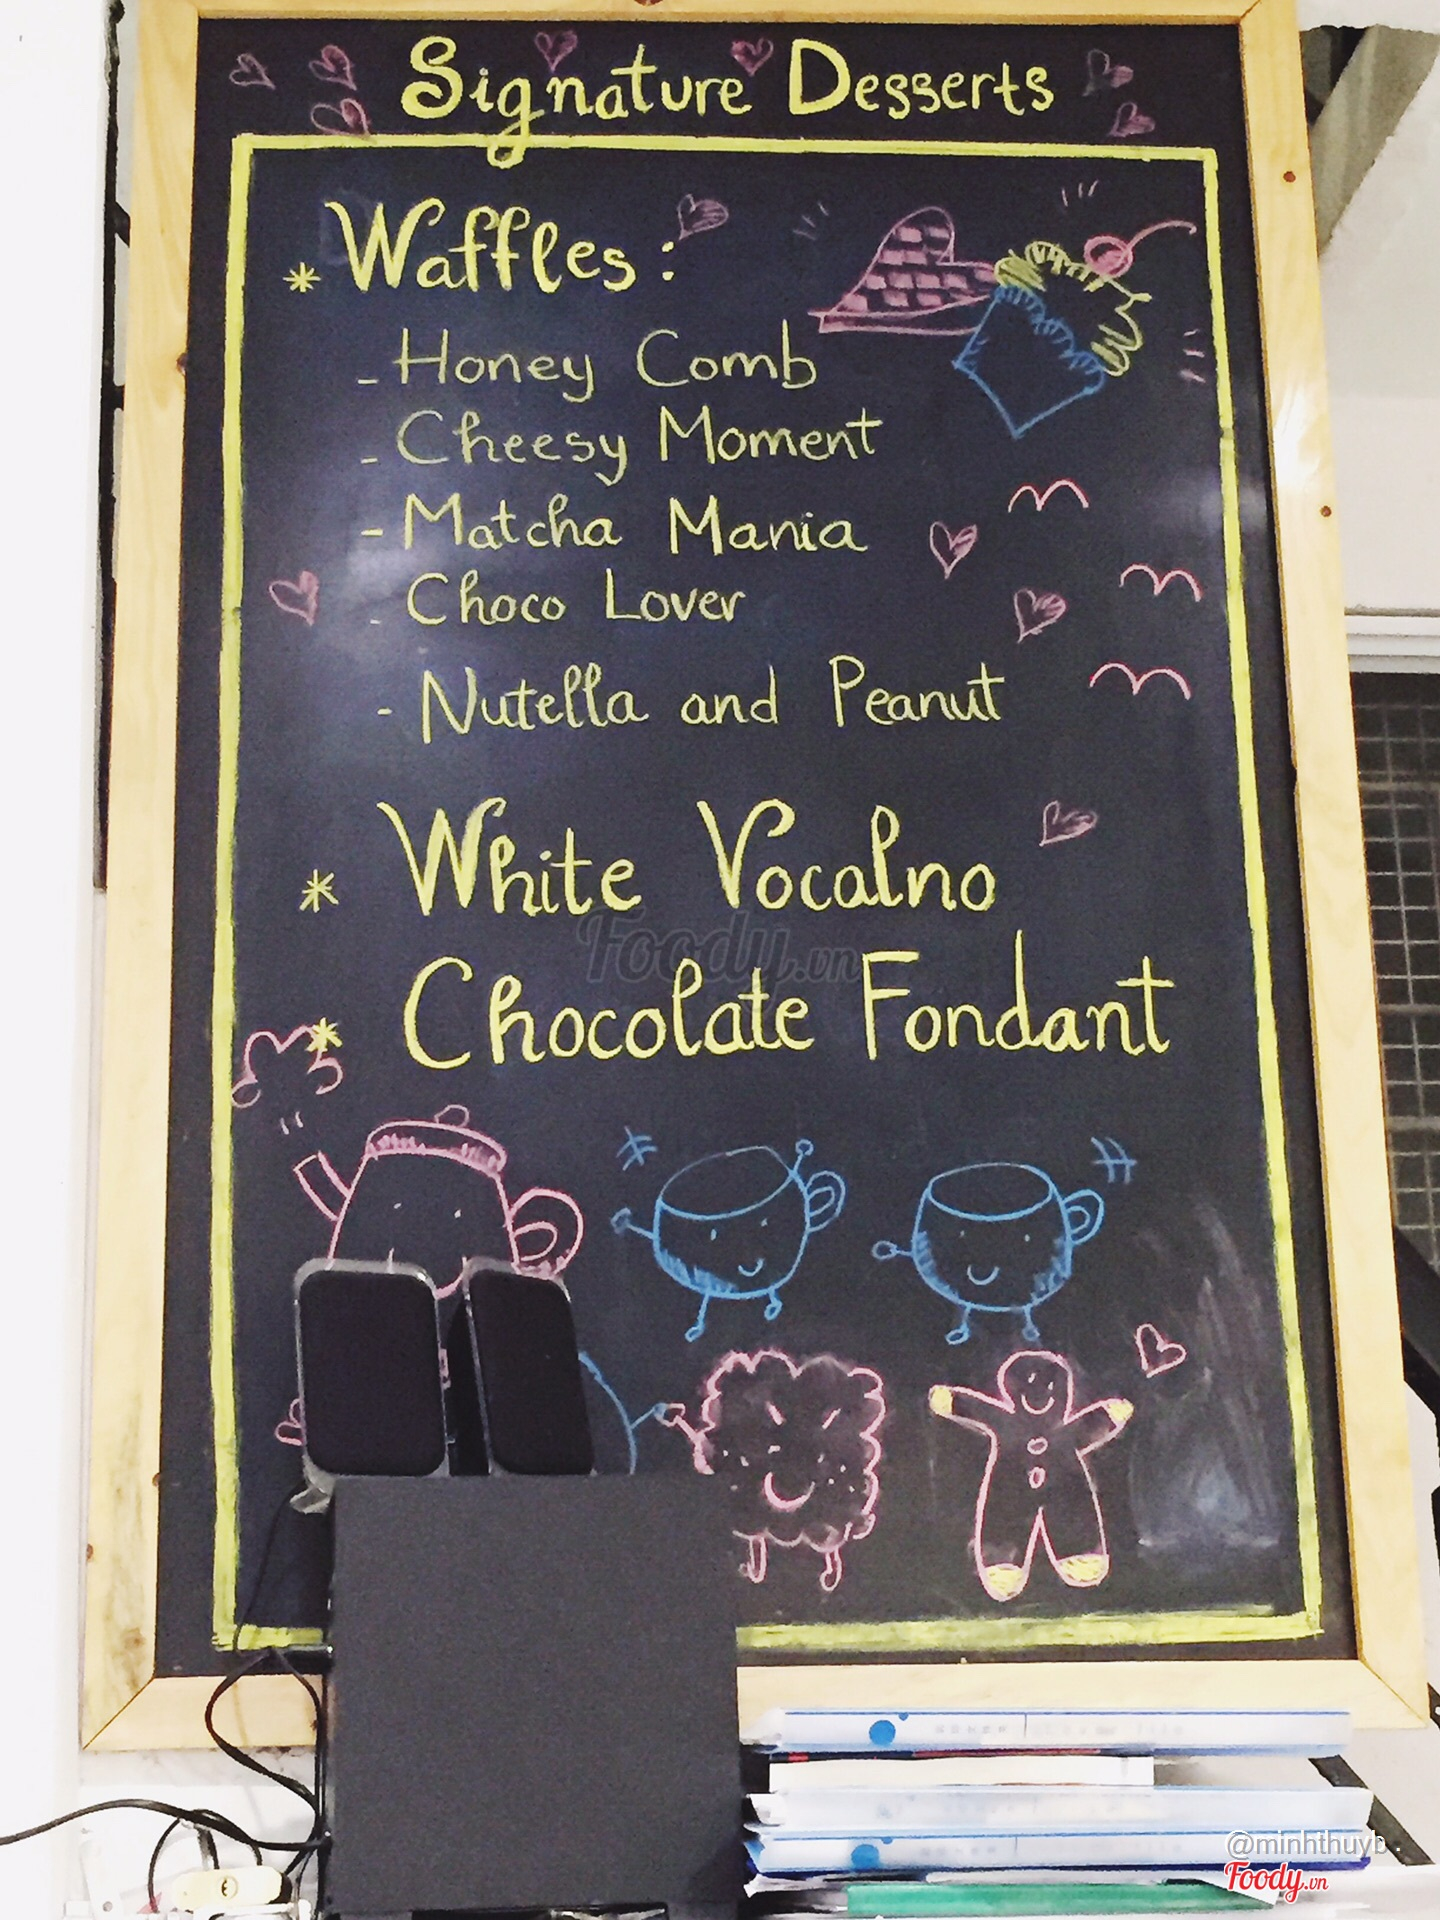 Signature Desserts
* Waffles :
- Honey Comb
- Cheesy Moment
- Matcha Mania
- Choco Lover
- Nutella and Peanut
* White Vocalno
* Chocolate Fondant
Foody.vn
@minhthuyb
Foody.vn